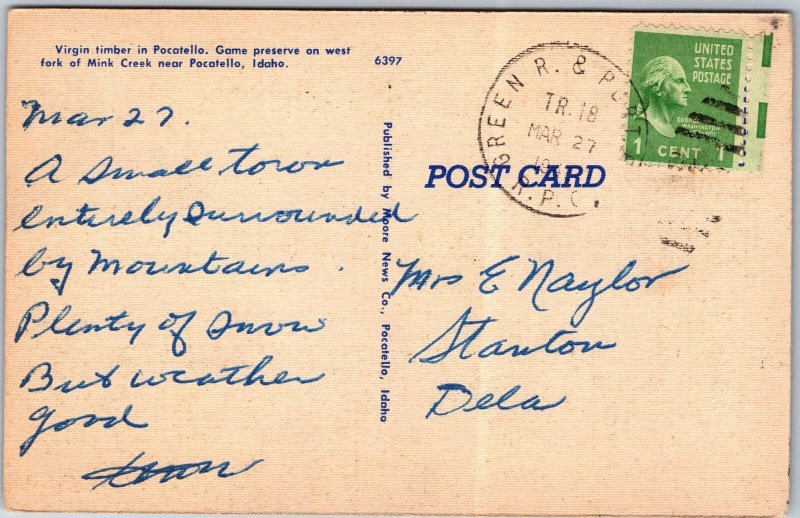 Virgin timber in Pocatello. Game preserve on west
fork of Mink Creek near Pocatello, Idaho.
6397
Mar 27.
A Small town
entirely surrounded
by Mountains.
Plenty of snow
But weather
good
Published by Moore News Co., Pocatello, Idaho
POST CARD
GREEN R. &
TR. 18
MAR 27
R.P.O.
UNITED
STATES
POSTAGE
GEORGE
WASHINGTON
1 CENT 1
Mrs E Naylor
Stanton
Dela